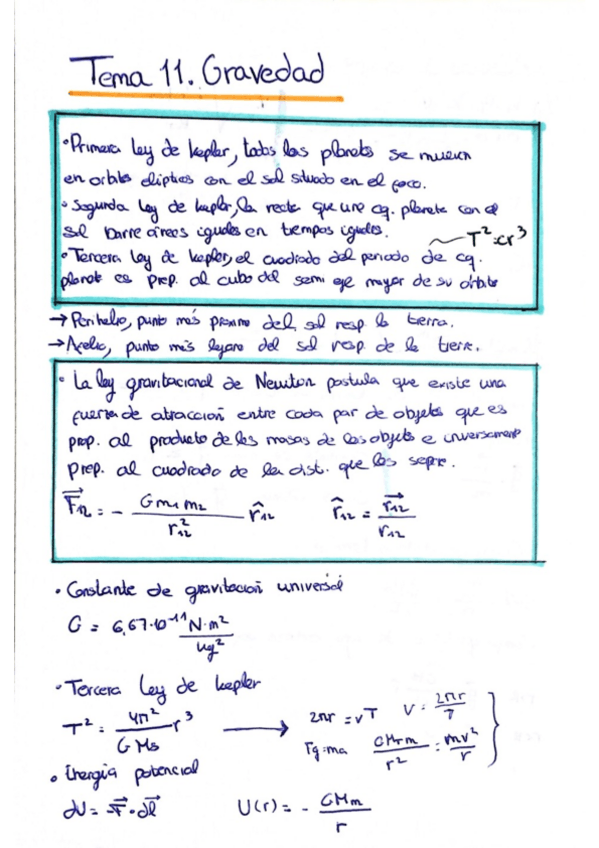 Tema 11. Gravedad
• Primera Ley de Kepler, todos los planetas se mueven
en orbitas elipticas con el sol situado en el foco.
• Segunda Ley de Kepler, la recta que une cq. planeta con el
sol barre áreas iguales en tiempos iguales.
T² = cr³
• Tercera Ley de Kepler, el cuadrado del periodo de cq.
planeta es prop. al cubo del semi eje mayor de su órbita
→ Perihelio, punto más próximo del sol resp. la tierra.
→ Afelio, punto más lejano del sol resp. de la tierra.
• La ley gravitacional de Newton postula que existe una
fuerza de atracción entre cada par de objetos que es
prop. al producto de las masas de los objetos e inversamente
prop. al cuadrado de la dist. que los separe.
F⃗₁₂ = - G m₁ m₂ / r₁₂² r̂₁₂    r̂₁₂ = r⃗₁₂ / r₁₂
• Constante de gravitación universal
G = 6,67·10⁻¹¹ N·m² / kg²
• Tercera Ley de Kepler
T² = 4π² / G Ms r³ → 2πr = vT    V = 2πr / T
Fg = ma    G M m / r² = mv² / r
• Energía potencial
dU = -F⃗ · dl⃗    U(r) = - GMm / r